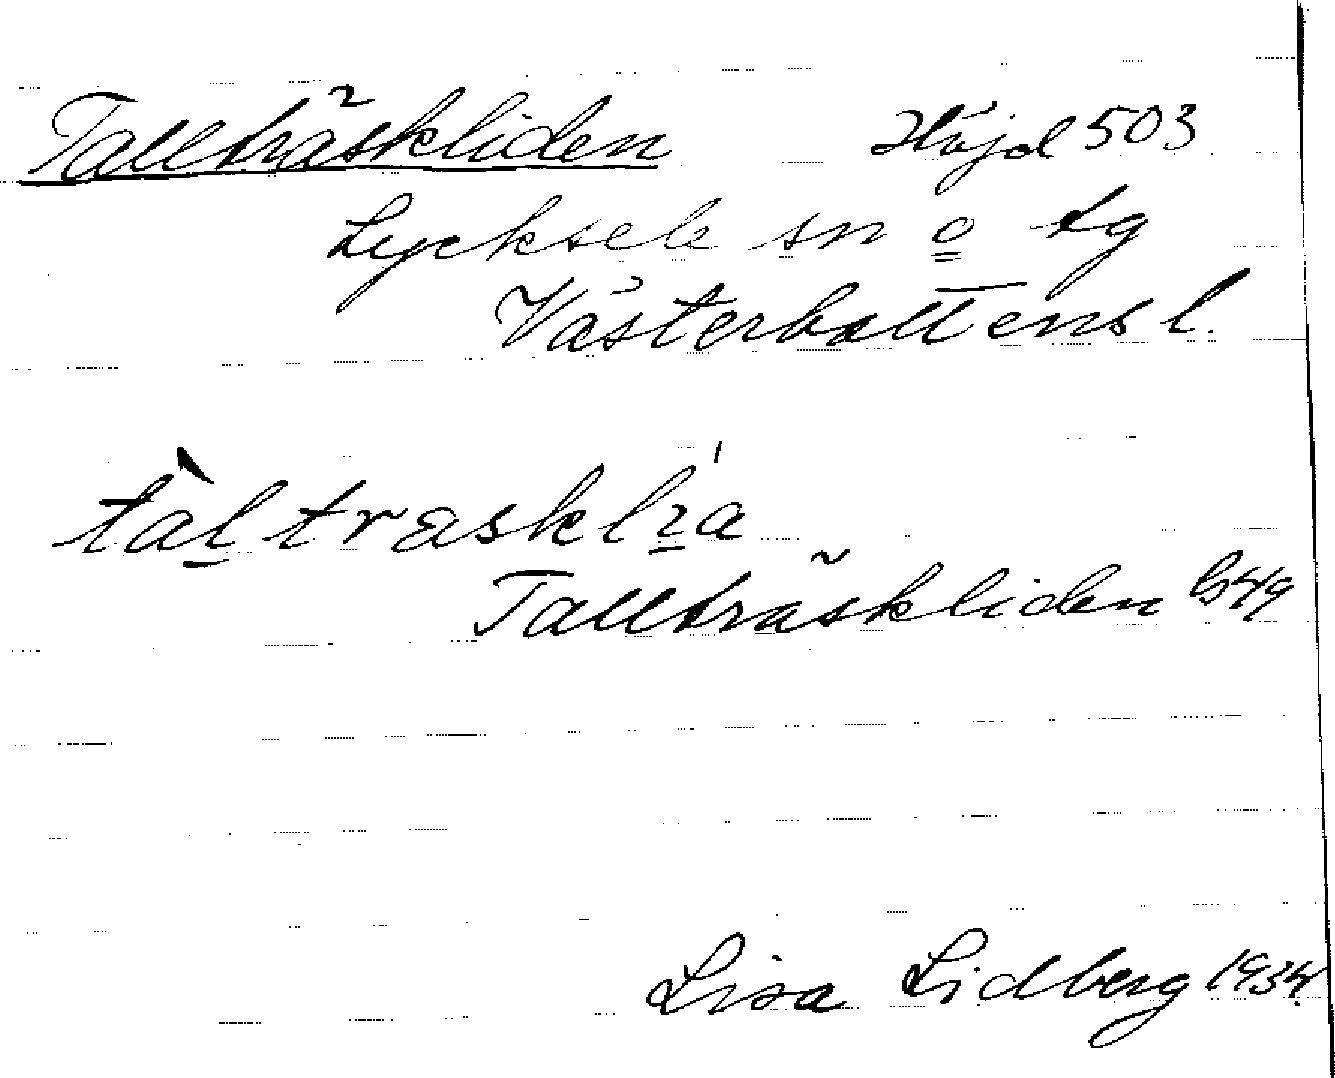 Tallträskliden Höjd 503
Lycksele sn o tg
Västerbottens l.
tàl̠traskl̠ı́a
Tallträskliden
Lisa Lidberg 1934.